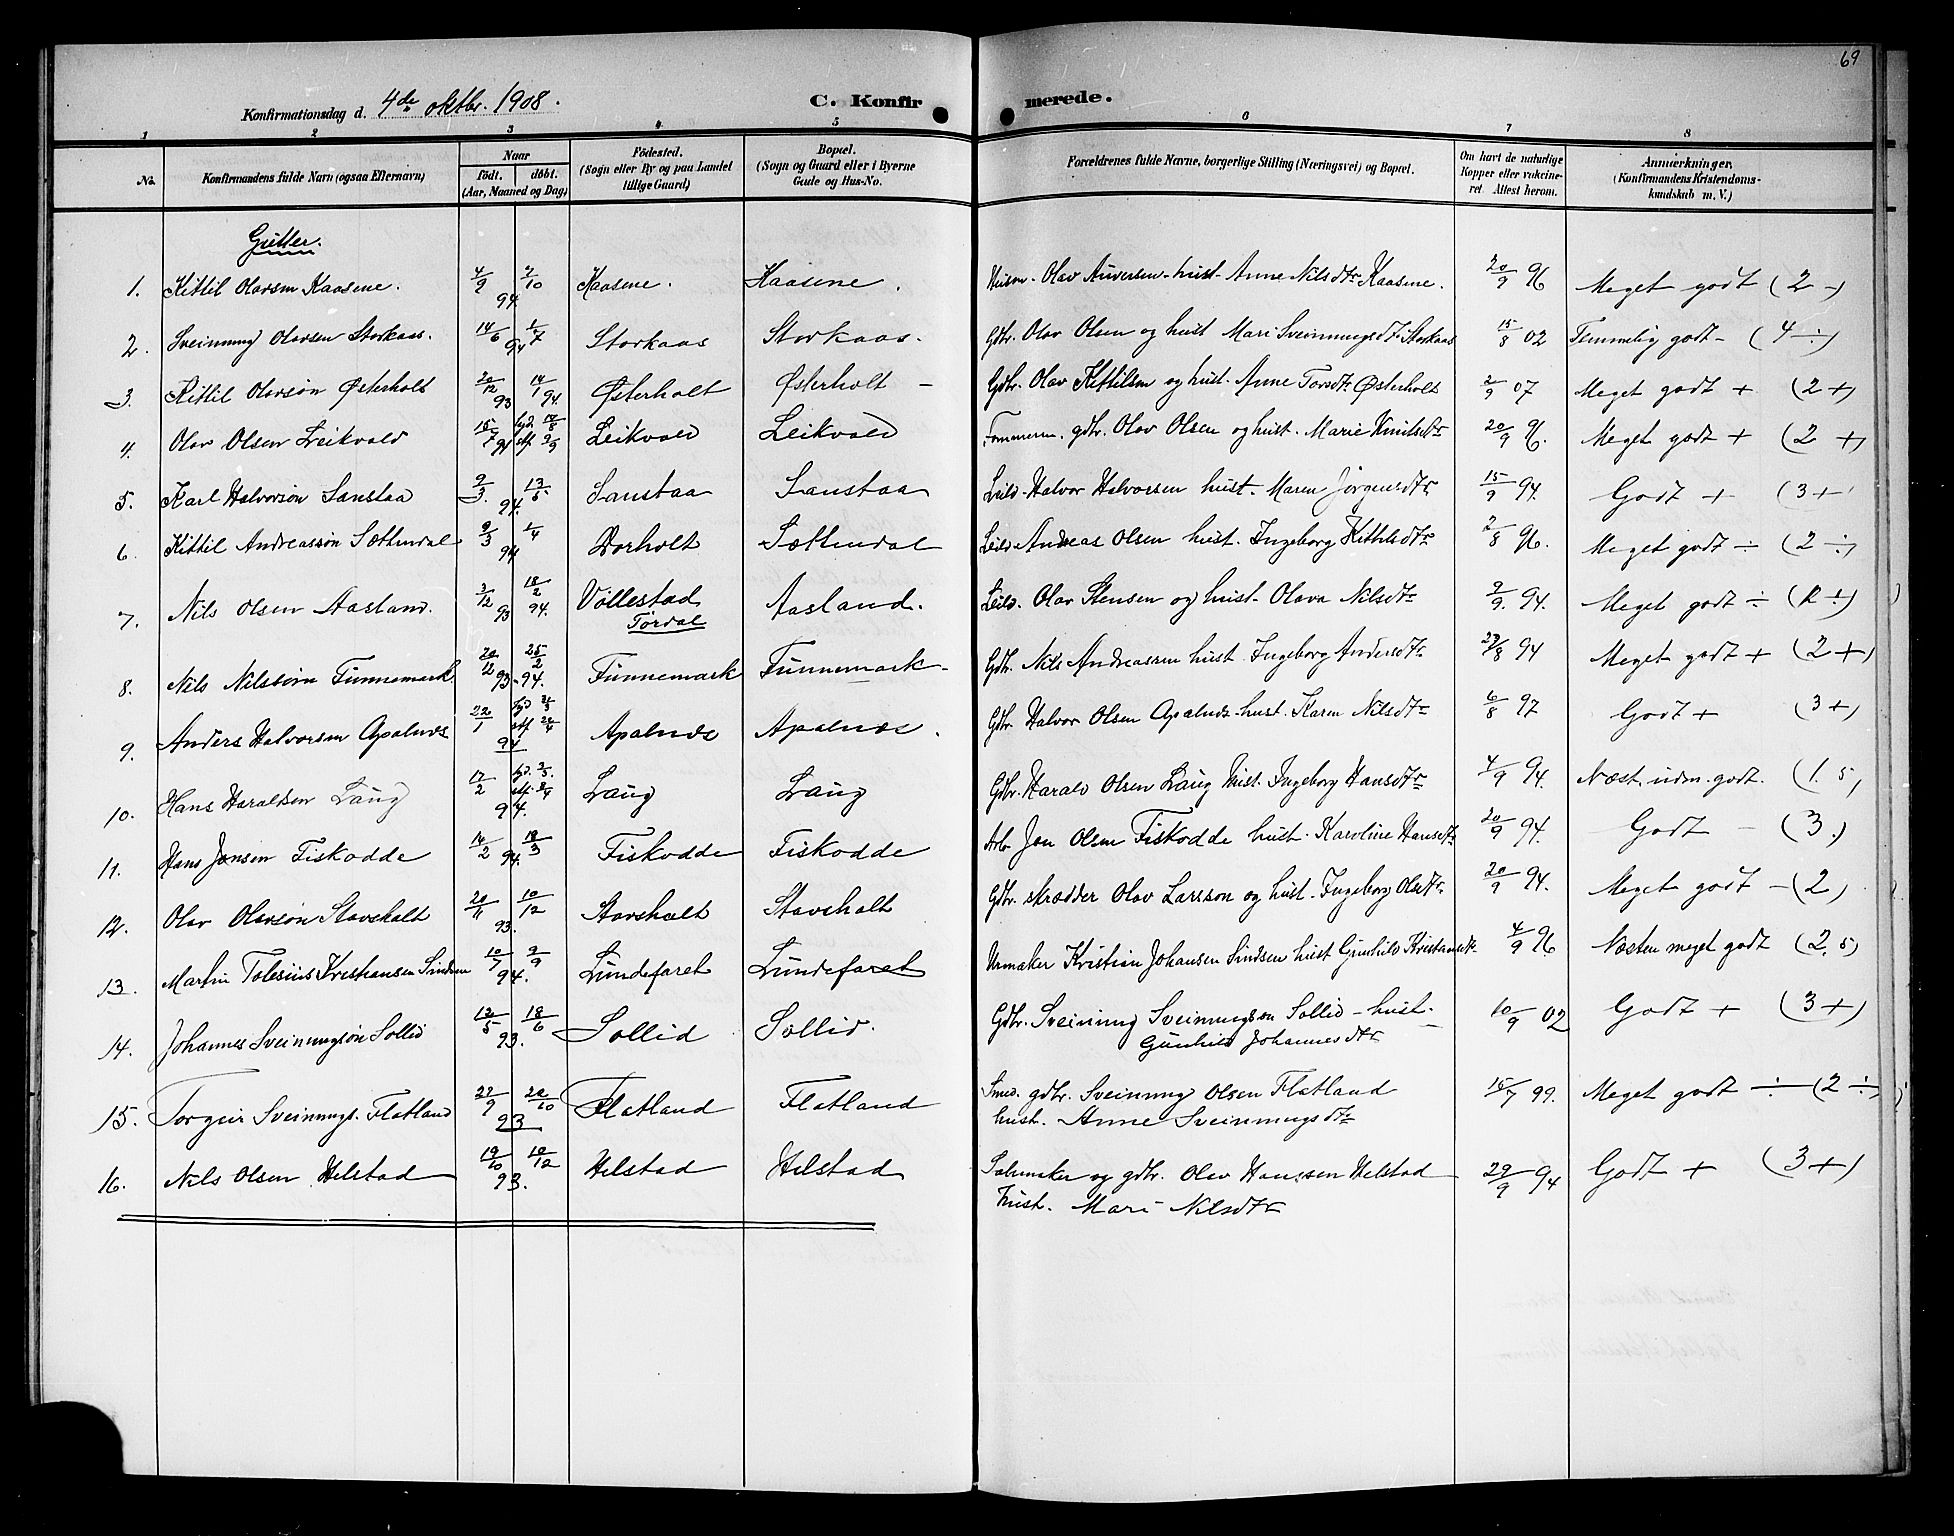 69
Konfirmationsdag d. 4de oktbr. 1908.
C. Konfirmerede.
1 2 3 4 5 6 7 8
No. Konfirmandens fulde Navn (ogsaa Efternavn) Naar født. døbt. (Aar, Maaned og Dag) Fødested. (Sogn eller By og paa Landet tillige Gaard) Bopæl. (Sogn og Gaard eller i Byerne Gade og Hus-No. Forældrenes fulde Navne, borgerlige Stilling (Næringsvei) og Bopæl. Om havt de naturlige Kopper eller vakcineret. Attest herom. Anmærkninger. (Konfirmandens Kristendomskundskab m. V.)
Gutter.
1. Kittil Olavsen Kaasene. 4/9 2/10 94 Kaasene. Kaasene. Husm. Olav Auversen hust. Anne Nilsdtr Kaasene. 20/9 96 Meget godt (2 -)
2. Sveinung Olavsen Storkaas. 14/6 1/7 94 Storkaas Storkaas. Gdbr. Olav Olsen og hust Mari Sveinungsdtr Storkaas 15/8 02 Temmelig godt - (4 ÷)
3. Kittil Olavsøn Østerholt 20/12 93 14/1 94. Østerholt Østerholt - Gdbr. Olav Kittilsen og hust. Anne Torsdtr Østerholt 2/9 07 Meget godt + (2 +)
4. Olav Olsen Leikvold 15/7 94 Leikvold Leikvold Tømmerm. gdbr. Olav Olsen og hust. Marie Knutsdtr 20/9 96. Meget godt + (2 +)
5. Karl Halvorsøn Sanstaa 9/3. 13/5 94. Sanstaa Sanstaa Leil. Halvor Halvorsen hust. Maren Jørgensdtr 15/9 94. Godt + (3 +)
6. Kittil Andreassøn Sættendal 9/3 1/4 94 Dorholt Sættendal Leil. Andreas Olsen hust. Ingeborg Kittilsdtr 2/8 96. Meget godt ÷ (2 ÷)
7. Nils Olsen Aasland. 3/12 93 18/2 94. Vøllestad Tørdal Aasland. Leil. Olav Stensen og hust. Olava Nilsdtr 2/9. 94. Meget godt ÷ (2 ÷)
8. Nils Nilssøn Tunnemark 20/12 93 25/2 94. Tunnemark Tunnemark Gdbr. Nils Andreassen hust. Ingeborg Andersdtr 27/8 94 Meget godt + (2 +)
9. Anders Halvorsen Apalnæs 22/1 94 Apalnæs Apalnæs. Gdbr. Halvor Olsen Apalnæs hust. Karen Nilsdtr 6/8 97 Godt + (3 +)
10. Hans Haraldsen Laug 17/2 94. Laug Laug Gdbr. Harald Olsen Laug hust. Ingeborg Hansdtr 4/9 94. Næst. udm. godt. (1. 5)
11. Hans Jonsen Fiskodde 14/2 18/3 94. Fiskodde Fiskodde Arb Jon Olsen Fiskodde hust. Karoline Hansdtr 20/9 94. Godt - (3.)
12. Olav Olavsøn Stavsholt 20/11 10/12 93. Stavsholt Stavsholt Gdbr. skrædder Olav Larsson og hust. Ingeborg Olsdtr. 20/9 94. Meget godt - (2)
13. Martin Tolesius Kristiansen Sindsen 10/7 9/9 94. Lundefaret Lundefaret Urmaker Kristian Johansen Sindsen hust Gunhild Kristiansdtr 4/9 96 Næsten meget godt (2, 5)
14. Johannes Sveinungsøn Sollid 13/5 18/6 93. Sollid Sollid. Gdbr. Sveinung Sveinungsøn Sollid - hust. 10/9 02 Godt + (3 +)
Gunhild Johannesdtr
15. Torgeir Sveinungs. Flatland 27/9 22/10 93 Flatland Flatland Smed. gdbr. Sveinung Olsen Flatland 15/7 99. Meget godt ÷ (2 ÷)
hust. Anne Sveinungsdtr
16. Nils Olsen Helstad 19/10 10/12 93. Helstad Helstad Salmaker og gdbr. Olav Hanssen Helstad 29/9 94 Godt + (3 +)
hust. Mari Nilsdtr